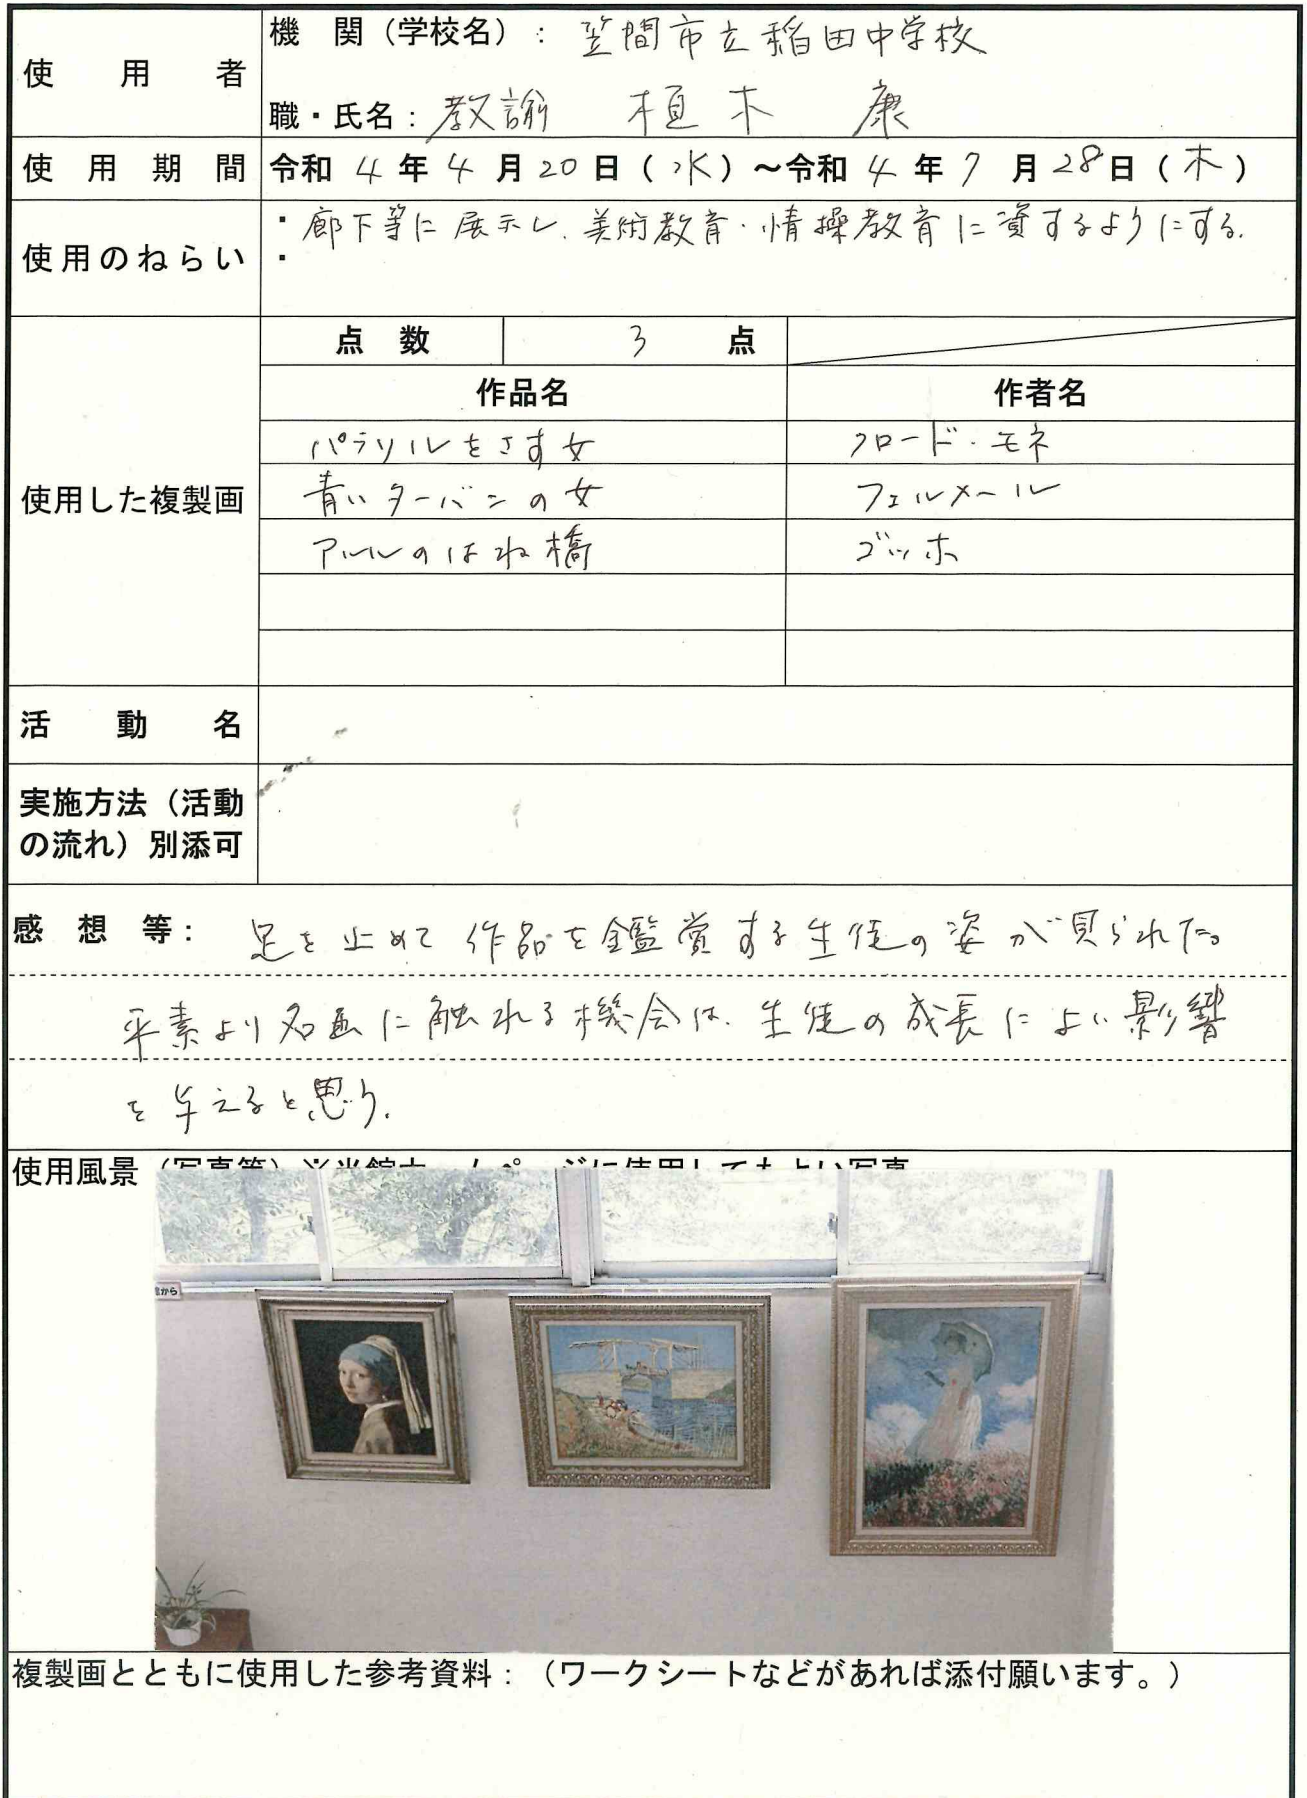 使用者
機関（学校名）：笠間市立稲田中学校
職・氏名：教諭 植木 康
使用期間
令和4年4月20日（水）～令和4年7月28日（木）
使用のねらい
・廊下等に展示し、美術教育・情操教育に資するようにする.
・
使用した複製画
点数 3 点
作品名 作者名
パラソルをさす女 クロード・モネ
青いターバンの女 フェルメール
アルルのはね橋 ゴッホ
活動名
実施方法（活動
の流れ）別添可
感想等： 足を止めて作品を鑑賞する生徒の姿が見られた。
平素より名画に触れる機会は、生徒の成長によい影響
を与えると思う.
使用風景（写真等）※当館ホームページに使用してもよい写真
館から
複製画とともに使用した参考資料：（ワークシートなどがあれば添付願います。）